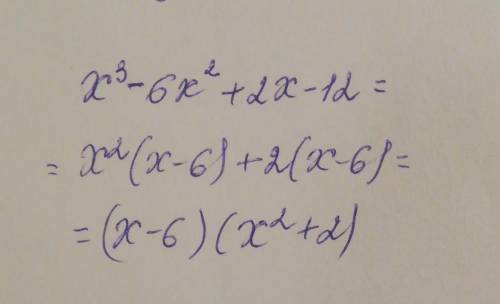 x³-6x²+2x-12=
=x²(x-6)+2(x-6)=
=(x-6)(x²+2)